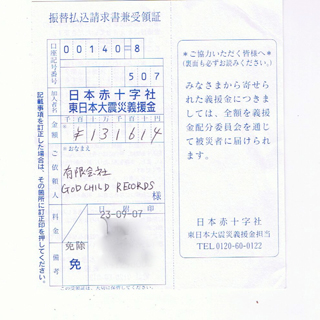 振替払込請求書兼受領証
口座記号番号
00140-8
507
加入者名
日本赤十字社
東日本大震災義援金
金額
千百十万千百十円
¥131614
ご依頼人
*おなまえ
有限会社
GOD CHILD RECORDS
様
料金
日附印
23-09-07
免除
免
備考
記載事項を訂正した場合は、その箇所に訂正印を押してください。
*ご協力いただく皆様へ*
(裏面も必ずお読みください。)
みなさまから寄せられた
義援金につきま
しては、全額を義援
金配分委員会を通じ
て被災者に届けられ
ます。
日本赤十字社
東日本大震災義援金担当
TEL 0120-60-0122